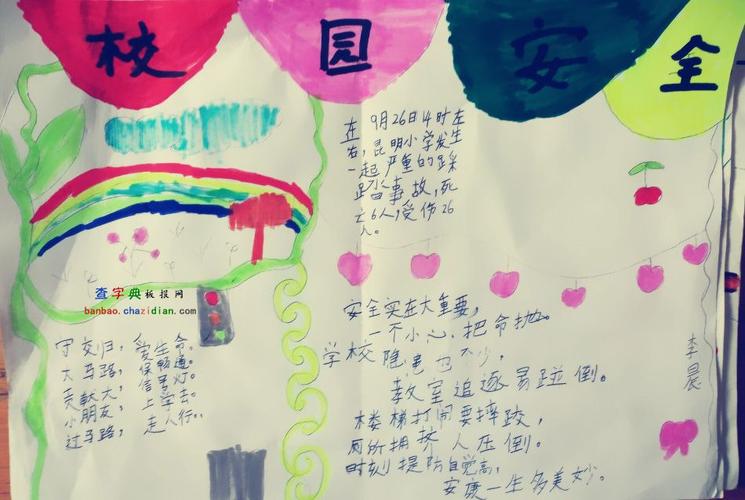 校园安全
在9月26日14时左
右,昆明小学发生
一起严重的踩
踏事故,死
亡6人,受伤26
人。
查字典板报网
banbao.chazidian.com
守交归,爱生命。
大马路,保畅通。
贡献大,信号灯。
小朋友,上学去。
过马路,走人行..
安全实在大重要,
一不小心把命抛。
学校隐患也不少,
教室追逐易碰倒。
楼梯打闹要摔跤,
厕所拥挤人压倒。
时刻提防自觉高,
安康一生多美妙。
李晨